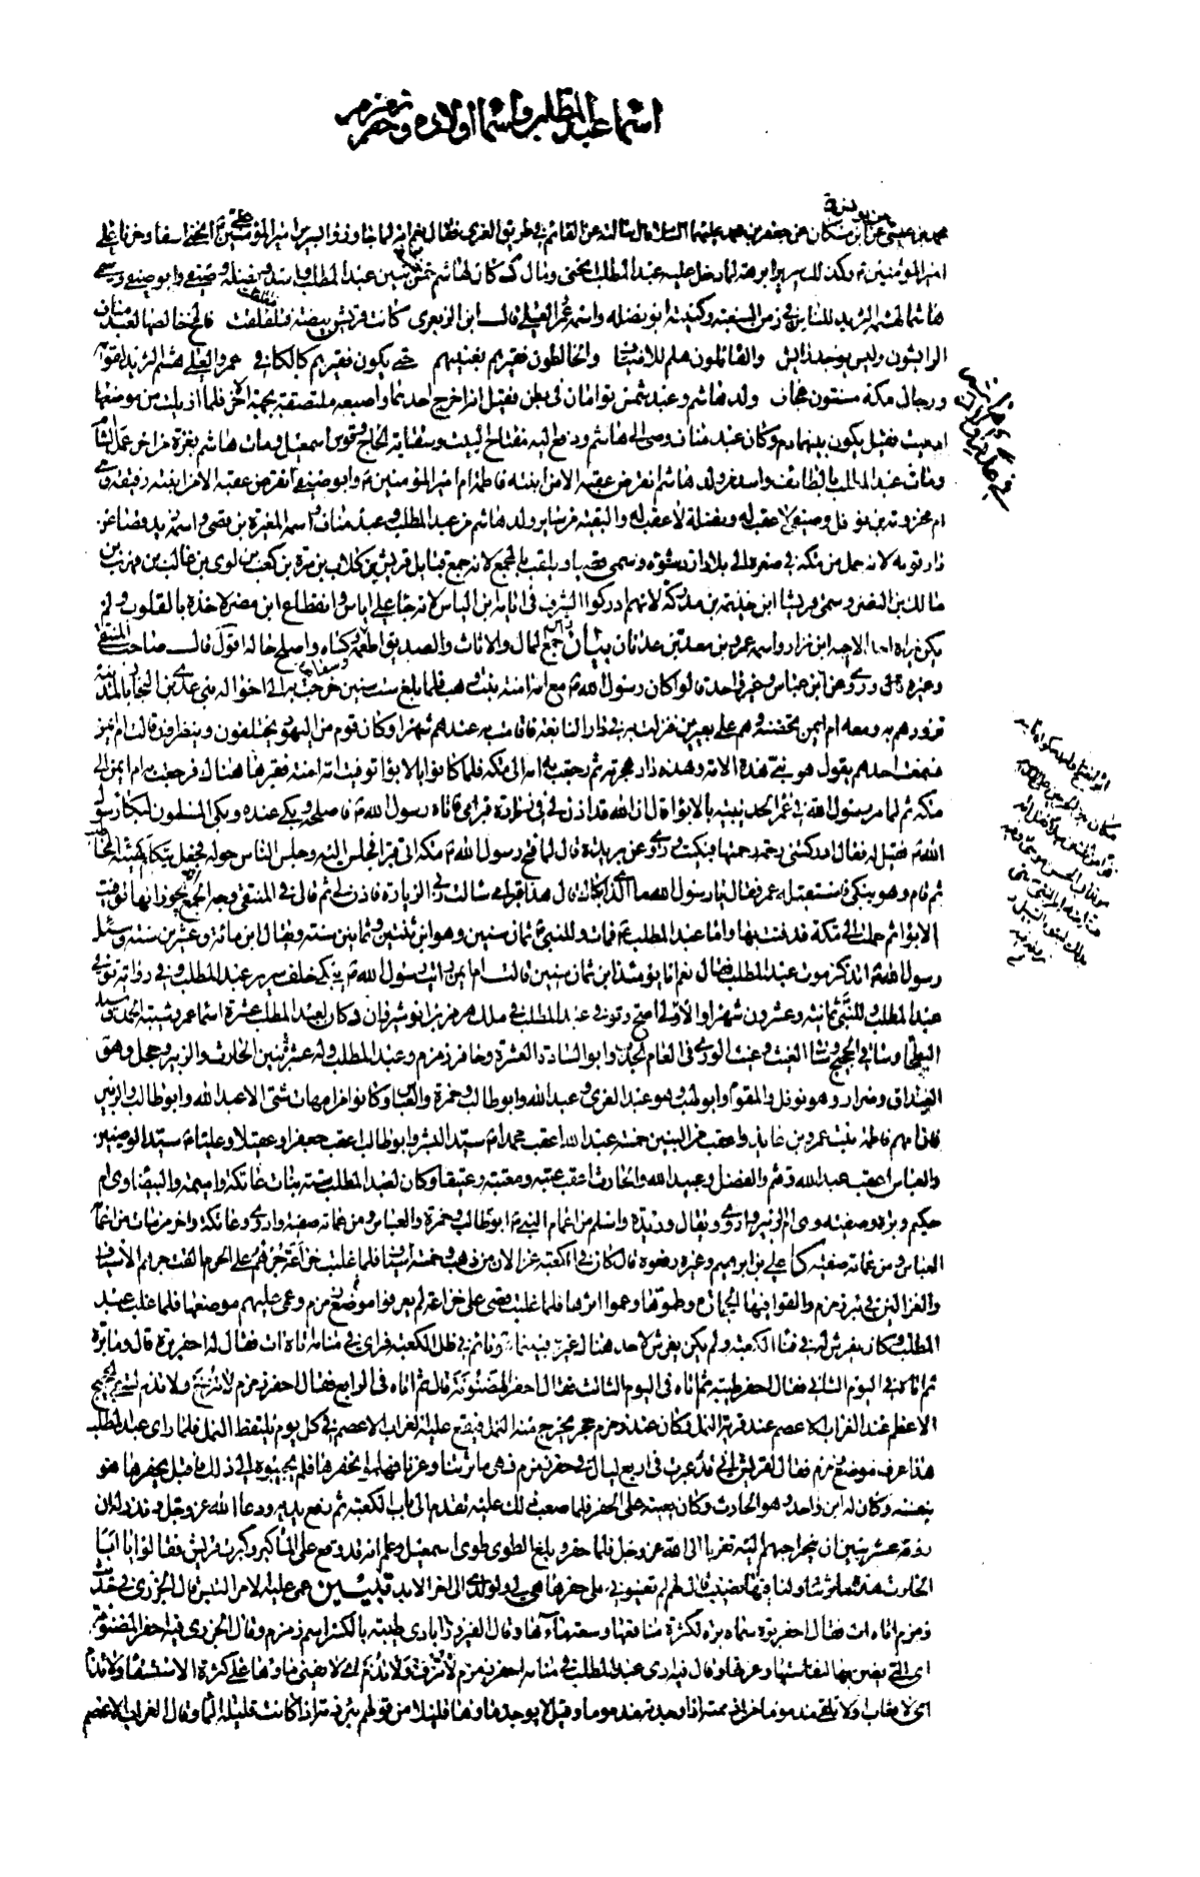 اسما عبد المطلب واسما اولاده وحفر زمزم
محمد بن عيسى عن ابن مسكان عن جعفر بن محمد عليهما السلام قال سألته عن القائم في طريق الغري فقال نعم انه لما جاوزوا بسرير امير المؤمنين علي انحنى اسفا وحزنا على
امير المؤمنين وكذلك سرير ابرهة لما دخل عليه عبد المطلب انحنى ومال كان لهاشم خمس بنين عبد المطلب واسد ونضلة وصيفي وابو صيفي وسمي
هاشما لهشمه الثريد للناس في زمن المسغبة وكنيته ابو نضلة واسمه عمرو العلى قال ابن الزبعرى كانت قريش بيضة فتفلقت فالمخ خالصها لعبد مناف
الرايشون وليس يوجد رايش والقائلون هلم للاضياف والخالطون فقيرهم بغنيهم حتى يكون فقيرهم كالكافي عمرو العلى هشم الثريد لقومه
ورجال مكة مسنتون عجاف ولد هاشم وعبد شمس توأمان في بطن فقيل انه اخرج احدهما واصبعه ملتصقة بجبهة الاخر فلما ازيلت من موضعها
ادميت فقيل يكون بينهما دم وكان عبد مناف وصى الى هاشم ودفع اليه مفتاح البيت وسقاية الحاج وقوس اسمعيل ومات هاشم بغزة من اخر عمل الشام
ومات عبد المطلب بالطائف واسد ولد هاشم انقرض عقبه الا من ابنته فاطمة ام امير المؤمنين وابو صيفي انقرض عقبه الا من ابنته رقيقة وهي
ام مخرمة بن نوفل وصيفي لا عقب له ونضلة لا عقب له والبقية من سائر ولد هاشم من عبد المطلب وعبد مناف اسمه المغيرة بن قصي واسمه زيد وقصا عن
دار قومه لانه حمل من مكة في صغره الى بلاد ازد شنوءة وسمي قصيا ويلقب بالمجمع لانه جمع قبايل قريش بن كلاب بن مرة بن كعب بن لوي بن غالب بن فهر بن
مالك بن النضر وسمي قريشا ابن خزيمة بن مدركة لانهم ادركوا الشرف في ايامه ابن الياس لانه جاء على اياس وانقطاع ابن مضر لاخذه بالقلوب ولم
يكن يراه احد الا احبه ابن نزار واسمه عمرو بن معد بن عدنان بيان جمع المال والاثاث والصديق اطعمه وكساه واصلح حاله اقول قال صاحب المنتقى
وغيره روي عن ابن عباس وغير واحد قالوا كان رسول الله مع امه امنة بنت وهب فلما بلغ ست سنين خرجت به الى اخواله بني عدي بن النجار بالمدينة
تزورهم به ومعه ام ايمن تحضنه وهم على بعيرين فنزلت به في دار النابغة فاقامت به عندهم شهرا وكان قوم من اليهود يختلفون وينظرون قالت ام ايمن
فسمعت احدهم يقول هو نبي هذه الامة وهذه دار هجرته ثم رجعت به امه الى مكة فلما كانوا بالابواء توفيت امه امنة فقبرها هناك فرجعت به ام ايمن الى
مكة ثم لما مر رسول الله في عمرة الحديبية بالابواء قال ان الله قد اذن لي في زيارة قبر امي فاتاه رسول الله فاصلحه وبكى عنده وبكى المسلمون لبكاء رسول
الله فقيل له فقال ادركتني رحمة رحمتها فبكيت وروي عن بريدة قال لما فتح رسول الله مكة اتى قبرا فجلس اليه وجلس الناس حوله فجعل يتكلم كهيئة المخاطب
ثم قام وهو يبكي فاستقبله عمر فقال يا رسول الله ما الذي ابكاك قال هذا قبر امي سالت ربي الزيارة فاذن لي ثم قال في المنتقى وجه الجمع يجوز انها توفيت
بالابواء ثم حملت الى مكة فدفنت بها واما عبد المطلب فمات وللنبي ثمان سنين وهو ابن ثنتين وثمانين سنة ويقال ابن مائة وعشرين سنة وسئل
رسول الله اتذكر موت عبد المطلب فقال نعم انا يومئذ ابن ثمان سنين قالت ام ايمن رايت رسول الله يبكي خلف سرير عبد المطلب وفي رواية توفي
عبد المطلب وللنبي ثمانية وعشرون شهرا والاول اصح وتوفي عبد المطلب في ملك هرمز بن انوشيروان وكان لعبد المطلب عشرة اسماء عمرو شيبة الحمد وسيد
البطحاء وساقي الحجيج وساقي الغيث وغيث الورى في العام الجدب وابو السادة العشرة وحافر زمزم وعبد المطلب وله عشرة بنين الحارث والزبير وحجل وهو
الغيداق وضرار وهو نوفل والمقوم وابو لهب وهو عبد العزى وعبد الله وابو طالب وحمزة والعباس وكانوا من امهات شتى الا عبد الله وابو طالب والزبير
فان امهم فاطمة بنت عمرو بن عايذ واعقب من البنين خمسة عبد الله اعقب محمدا سيد البشر وابو طالب اعقب جعفرا وعقيلا وعليا سيد الوصيين
والعباس اعقب عبد الله وقثم والفضل وعبيد الله والحارث اعقب عتبة ومعتبة وعتيقا وكان لعبد المطلب ستة بنات عاتكة واميمة والبيضاء وهي ام
حكيم وبرة وصفية وهي ام الزبير واروى ويقال وريدة واسلم من اعمام النبي ابو طالب وحمزة والعباس ومن عماته صفية واروى وعاتكة واخر من مات من اعمامه
العباس ومن عماته صفية كا علي بن ابرهيم وغيره رفعوه قال كان في الكعبة غزالان من ذهب وخمسة اسياف فلما غلبت خزاعة جرهم على الحرم القت جرهم الاسياف
والغزالين في بئر زمزم والقوا فيها الحجارة وطموها وعموا اثرها فلما غلب قصي على خزاعة لم يعرفوا موضع زمزم وعمي عليهم موضعها فلما غلب عبد
المطلب وكان يفرش له في فناء الكعبة ولم يكن يفرش لاحد هناك غيره فبينما هو نائم في ظل الكعبة فراى في منامه اتاه ات فقال له احفر برة قال وما برة
ثم اتاه في اليوم الثاني فقال احفر طيبة ثم اتاه في اليوم الثالث فقال احفر المضنونة قال ثم اتاه في الرابع فقال احفر زمزم لا تنزح ولا تذم لسقي الحجيج
الاعظم عند الغراب الاعصم عند قرية النمل وكان عند زمزم حجر يخرج منه النمل فيقع عليه الغراب الاعصم في كل يوم يلتقط النمل فلما راى عبد المطلب
هذا عرف موضع زمزم فقال لقريش اني قد عبرت في اربع ليال في حفر زمزم فهي ماثرتنا وعزنا فهلموا نحفرها فلم يجيبوه الى ذلك فاقبل يحفرها هو
بنفسه وكان له ابن واحد وهو الحارث وكان يعينه على الحفر فلما صعب ذلك عليه تقدم الى باب الكعبة ثم رفع يديه ودعا الله عز وجل ونذر له ان
رزقه عشر بنين ان ينحر احبهم اليه تقربا الى الله عز وجل فلما حفر وبلغ الطوى طوى اسمعيل وعلم انه قد وقع على الماء كبر وكبرت قريش فقالوا يا ابا
الحارث هذه ماثرتنا ولنا فيها نصيب قال لهم لم تعينوني على حفرها هي لي ولولدي الى اخر الابد تبيين عمي عليه الامر التبس قال الجزري في حديث
زمزم اتاه ات فقال احفر برة سماها برة لكثرة منافعها وسعة مائها وقال الفيروزابادي طيبة بالكسر اسم زمزم وقال الجزري فيه احفر المضنونة
اي التي يضن بها لنفاستها وعزتها وقال فيه ارى عبد المطلب في منامه احفر زمزم لا تنزف ولا تذم اي لا يفنى ماؤها على كثرة الاستسقاء ولا تذم
اي لا تعاب ولا تلفى مذمومة من اذممته اذا وجدته مذموما وقيل لا يوجد ماؤها قليلا من قولهم بئر ذمة اذا كانت قليلة الماء وقال الغراب الاعصم